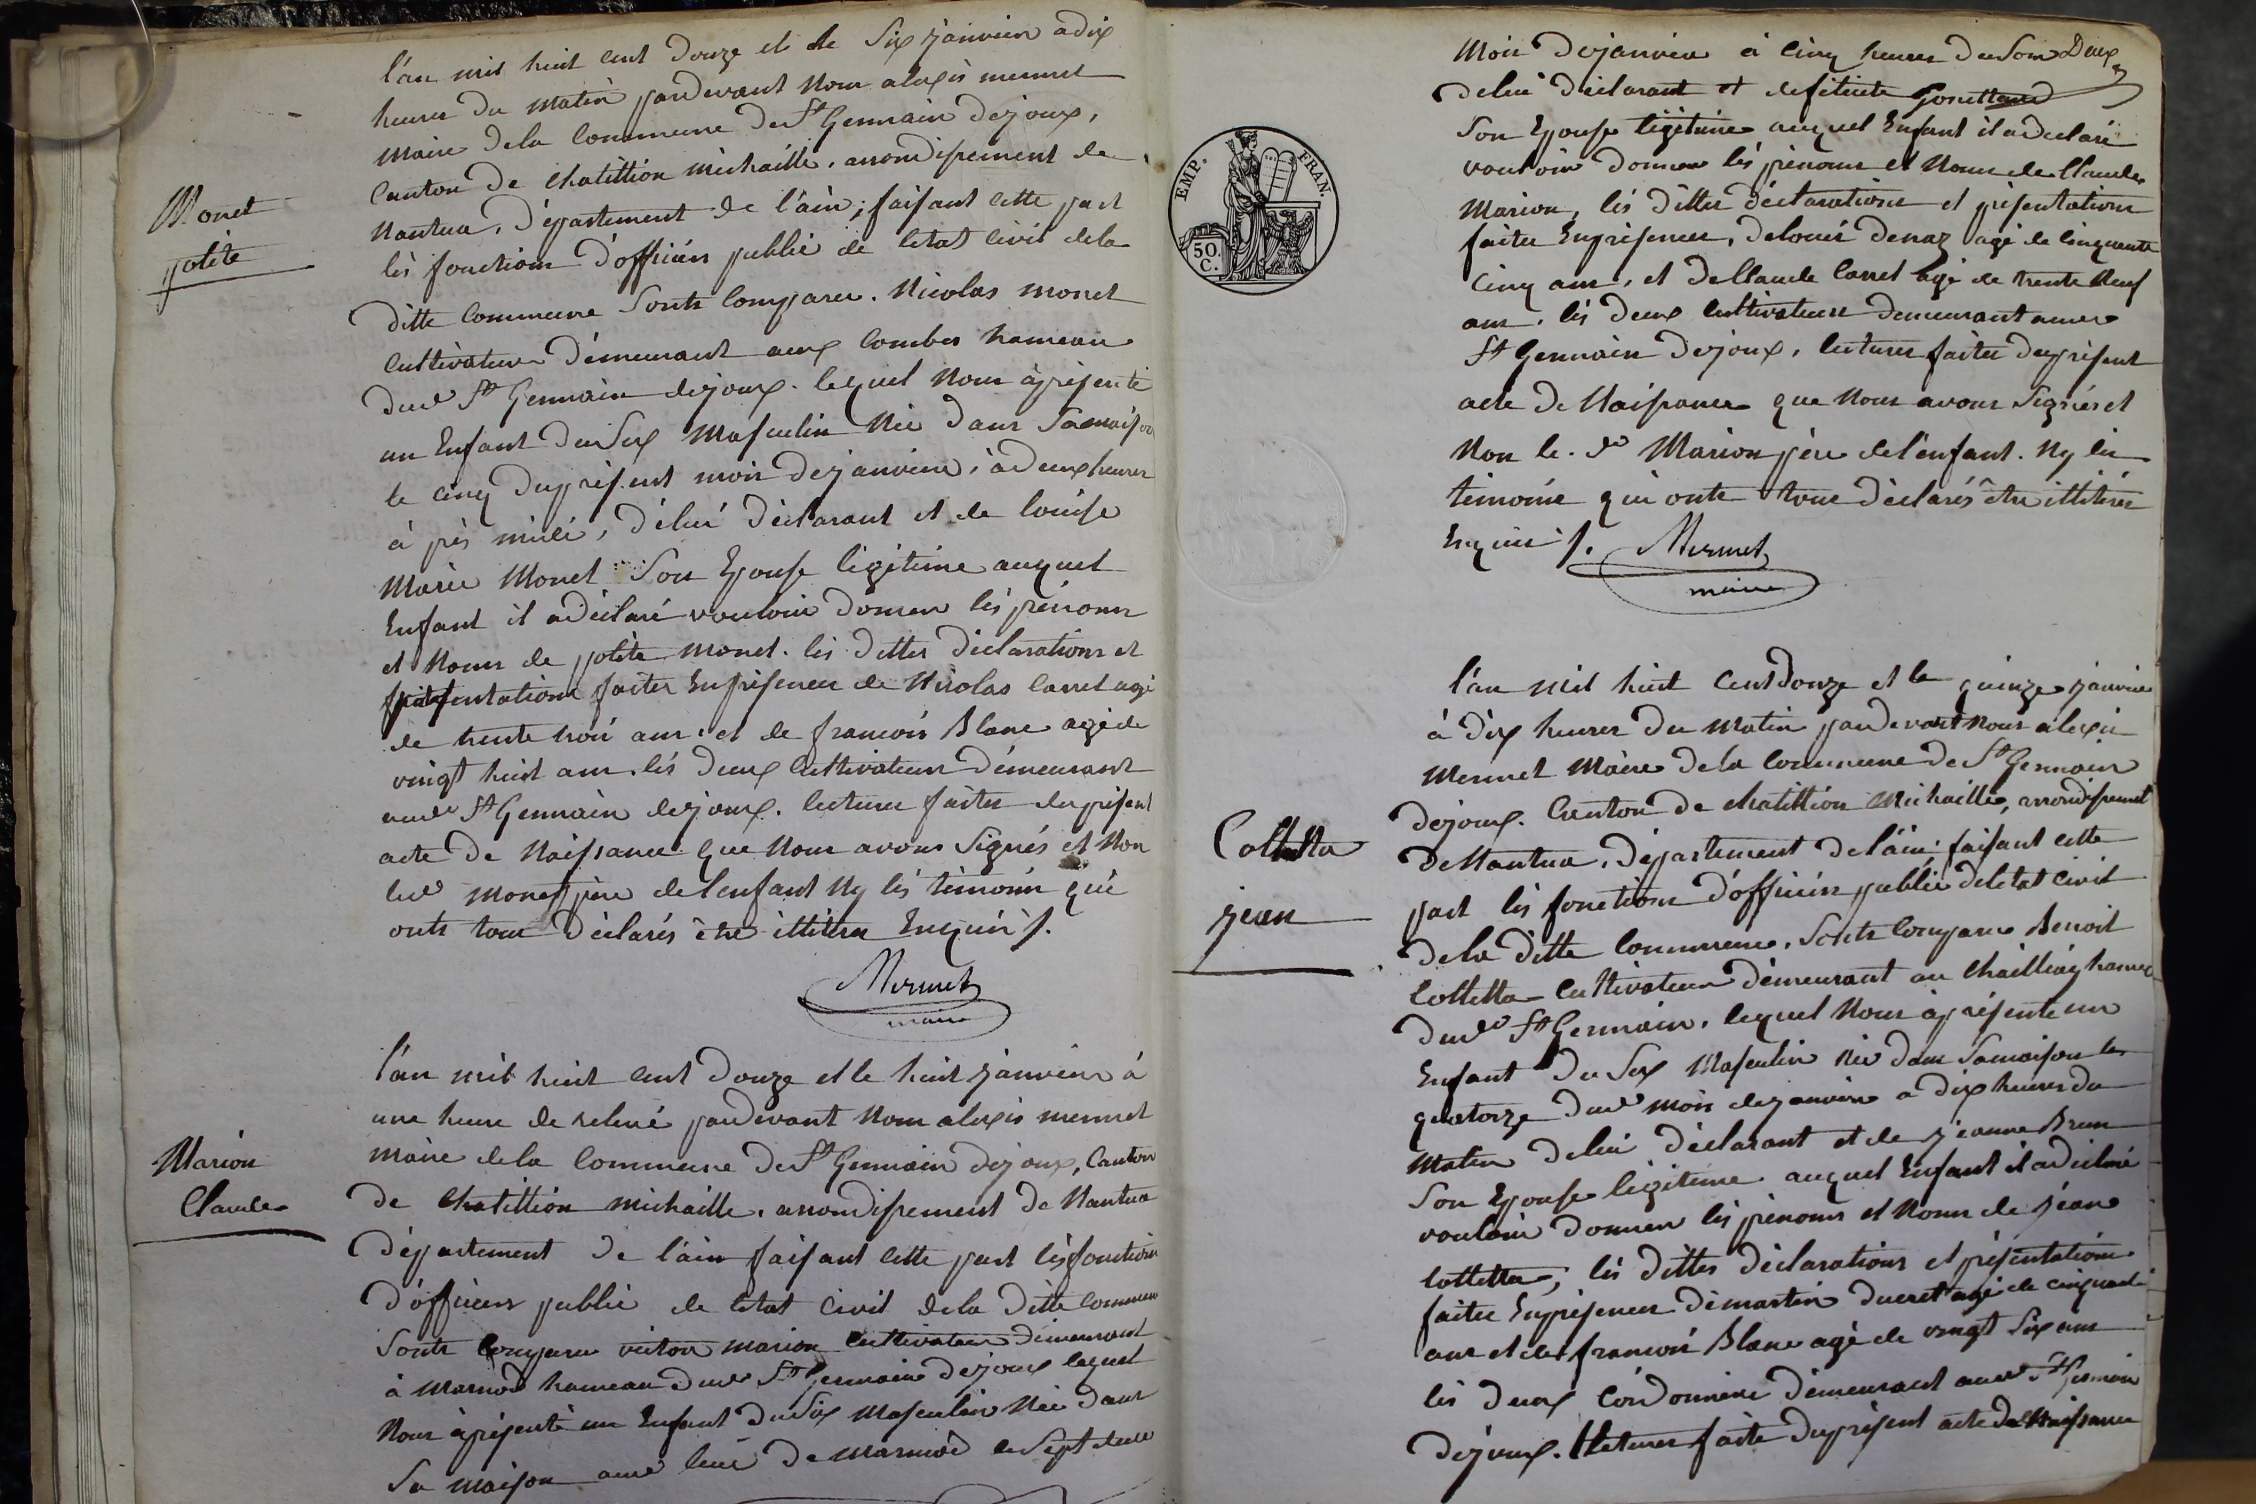 l'an mil huit cent douze et le six janvier a dix
heures du matin pardevant nous alexis mermet
maire de la commune de St Germain dejoux,
canton de chatillion michaille, arrondissement de
Nantua, département de l'ain, faisant cette part
lès fonctions d'officiér public de letat civil dela
ditte commune sonts comparu. Nicolas monet
cultivateur démeurant aux combes hameau
dud St Germain dejoux. lequel nous à présenté
un Enfant du sex masculin née dans sa maison
le cinq du présent mois de janvier, à deux heures
à près midi, délui déclarant et de louise
Marie Monet son Epouse légitime auquel
Enfant il a déclaré vouloir donner lès prénoms
et noms de polite monet. lès dittes déclarations et
présentations faites En présence de Nicolas carret agé
de trente trois ans, et de francois Blanc agé de
vingt huit ans. lès deux cultivateurs démeurant
aud St Germain dejoux. lecture faites du présent
acte de Naissance que nous avons signés et non
led monet père de l'enfant ny lès témoins qui
onts tous déclarés être illitéres Enquis /.
Mermet
maire
Monet
polite
l'an mil huit cent douze et le huit janvier à
une heure de relevé pardevant nous alexis mermet
maire dela commune de St Germain dejoux, canton
de chatillion michaille, arrondissement de Nantua
département de l'ain faisant cette part lès fonctions
d'officiers public de letat civil dela ditte commune
sonts comparu victor marion cultivateur démeurant
à marnod hameau dud St Germain dejoux lequel
nous à présenté un Enfant du sex masculin née dans
sa maison aud lieu de marnod le sept dud
Marion
Claude
EMP. FRAN.
50 C.
mois dejanvier à cinq heures du soir Deux
delui déclarant et
son Epouse légitime auquel Enfant il a déclaré
vouloir donner lès prénoms et noms de Claude
Marion, lès dittes déclarations et présentations
faites En présence, de louis denaz agé de cinquante
cinq ans, et de Claude Carret agé de trente neuf
ans. lès deux cultivateurs demeurant aud
St Germain dejoux, lectures faites du présent
acte de Naissance que nous avons signés et
non le. d Marion père de l'enfant. Ny lès
témoins qui onts tous déclarés être illitéres
Enquis /.
Mermet
maire
l'an mil huit cent douze et le quinze janvier
à dix heures du matin pardevant nous alexis
Mermet Maire dela commune de St Germain
dejoux. Canton de chatillion Michaille, arrondissement
de Nantua, département de l'ain, faisant cette
part lès fonctions d'officiér public de letat civil
dela ditte commune, sonts comparu Benoit
Colletta cultivateur démeurant au hameau
dud St Germain, lequel nous à présenté un
Enfant du sex Masculin née dans sa maison le
quatorze dud mois dejanvier a dix heures du
matin delui déclarant et de jeanne Brun
son Epouse légitime auquel Enfant il a déclaré
vouloir donner lès prénoms et noms de jean
Colletta; lès dittes déclarations et présentations
faites En présence de martin ducret agé de cinquante
ans et de francois Blanc agé de vingt six ans
lès deux cordonniers démeurant aud St Germain
dejoux. lectures faite du présent acte de Naissance
Colletta
jean